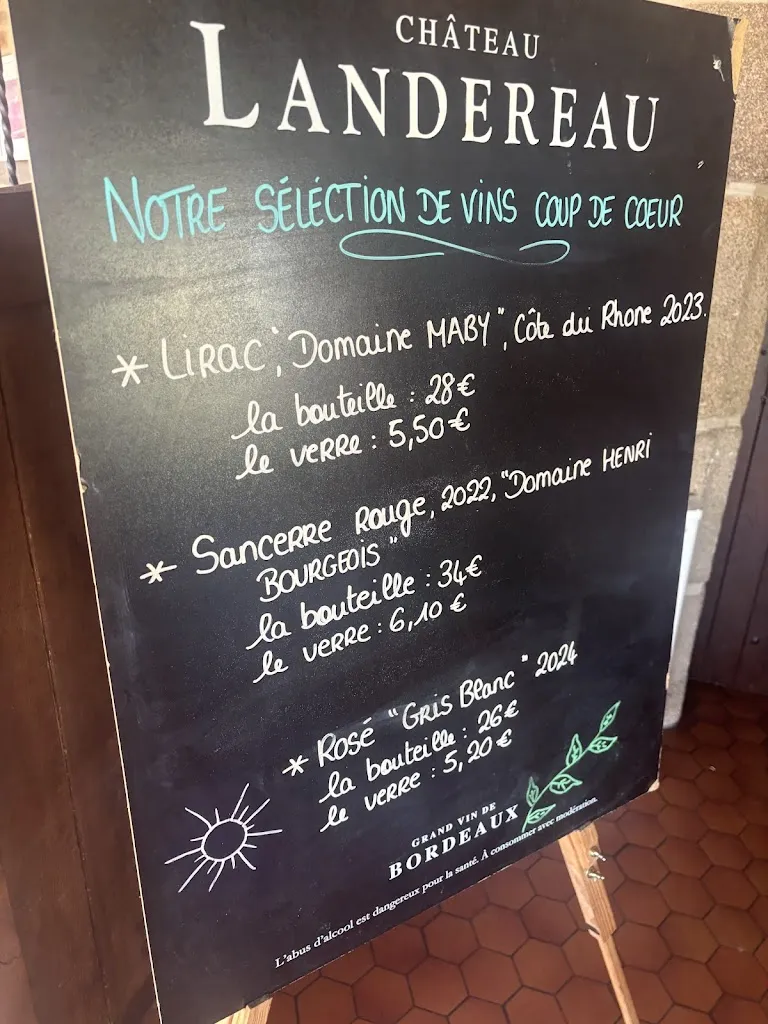 CHÂTEAU
LANDEREAU
NOTRE SÉLÉCTION DE VINS COUP DE COEUR
* LIRAC, "Domaine MABY", Côte du Rhone 2023.
la bouteille : 28€
le verre : 5,50€
* Sancerre Rouge, 2022, "Domaine HENRI
BOURGEOIS"
la bouteille : 34€
le verre : 6,10 €
* Rosé "GRIS Blanc" 2024
la bouteille : 26€
le verre : 5,20 €
GRAND VIN DE
BORDEAUX
L'abus d'alcool est dangereux pour la santé. À consommer avec modération.